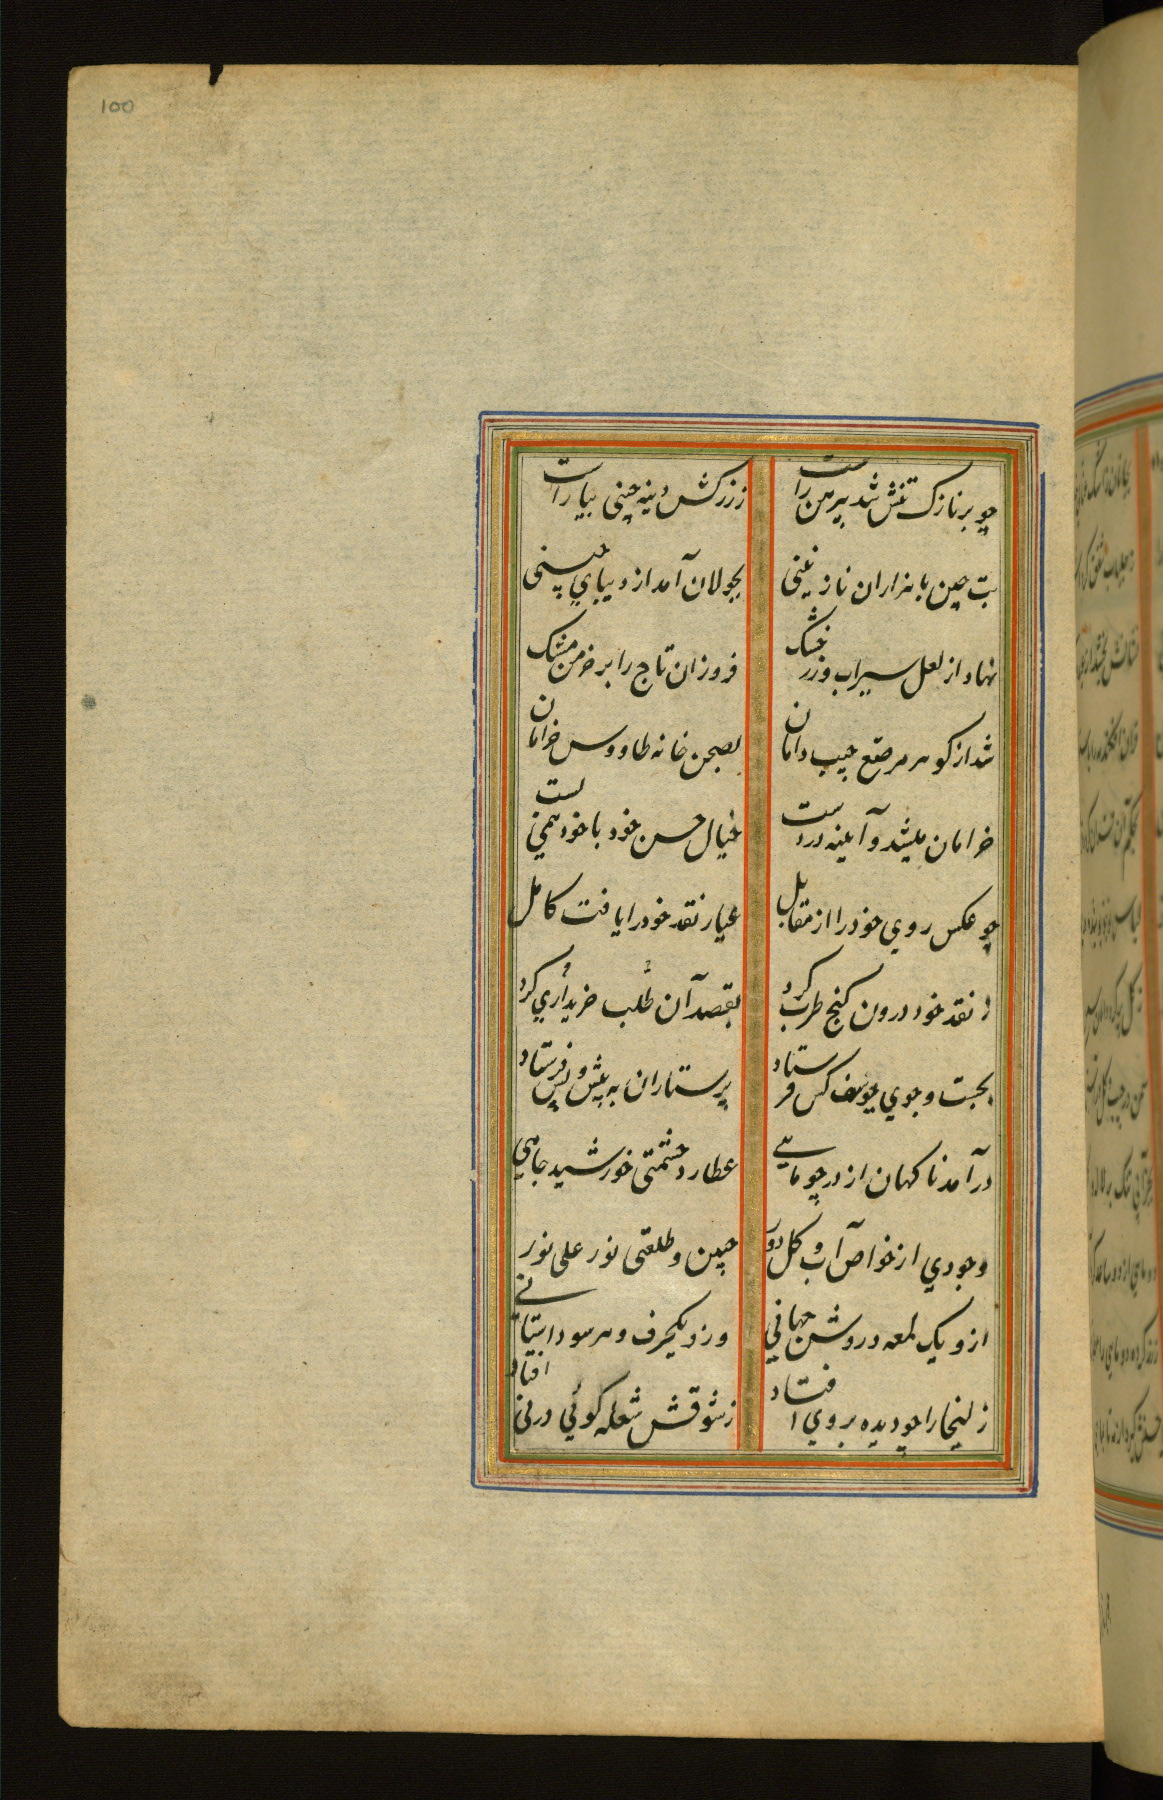 100
چو بر نازک تنش شد پیرهن راست
ز زرکش دینه چینی بیاراست
بت چین با هزاران نازنینی
بجولان آمد از دیبای چینی
نهاد از لعل سیراب و زر خشک
فروزان تاج را بر خرمن مشک
شد از کوهر مرصّع جیب و دامان
بصحن خانه طاووس خرامان
خرامان میشد و آیینه در دست
خیال حسن خود با خود همی بست
چو عکس روی خود را از مقابل
عیار نقد خود را یافت کامل
ز نقد خود درون کنج طرب کرد
بقصد آن طلب خریداری کرد
بجست و جوی یوسف کس فرستاد
پرستاران به پیش و پس فرستاد
در آمد ناکهان از در چو ماهی
عطارد حشمتی خورشید جاهی
وجودی از خواص آب و کل دور
جبین و طلعتی نور علی نور
ازو یک لمعه و روشن جهانی
وزو یکحرف و هر سو داستانی
زلیخا را چو دیده بروی افتاد
ز شوقش شعله کوئی در نی افتاد